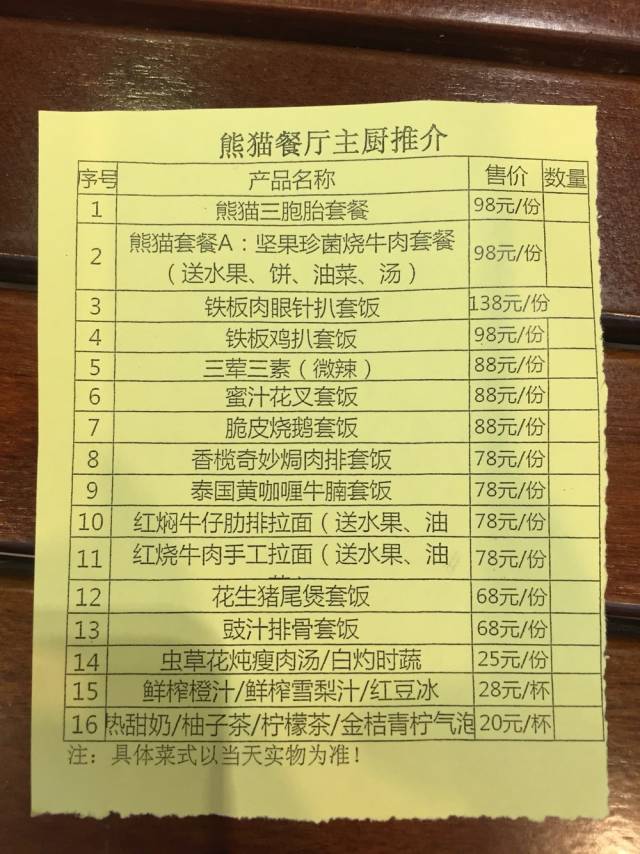 熊猫餐厅主厨推介
序号 产品名称 售价 数量
1 熊猫三胞胎套餐 98元/份
2 熊猫套餐A：坚果珍菌烧牛肉套餐 98元/份
（送水果、饼、油菜、汤）
3 铁板肉眼针扒套饭 138元/份
4 铁板鸡扒套饭 98元/份
5 三荤三素（微辣） 88元/份
6 蜜汁花叉套饭 88元/份
7 脆皮烧鹅套饭 88元/份
8 香榄奇妙焗肉排套饭 78元/份
9 泰国黄咖喱牛腩套饭 78元/份
10 红焖牛仔肋排拉面（送水果、油 78元/份
11 红烧牛肉手工拉面（送水果、油 78元/份
12 花生猪尾煲套饭 68元/份
13 豉汁排骨套饭 68元/份
14 虫草花炖瘦肉汤/白灼时蔬 25元/份
15 鲜榨橙汁/鲜榨雪梨汁/红豆冰 28元/杯
16 热甜奶/柚子茶/柠檬茶/金桔青柠气泡 20元/杯
注：具体菜式以当天实物为准！